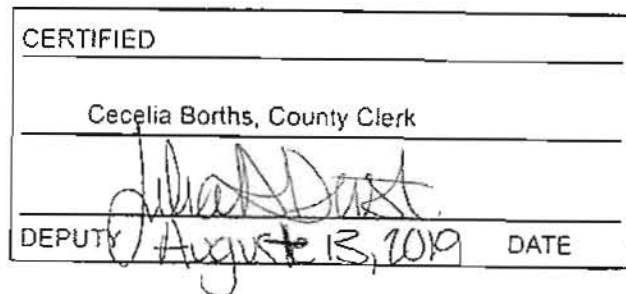 CERTIFIED
Cecelia Borths, County Clerk
Julia
DEPUTY August 13, 2019 DATE